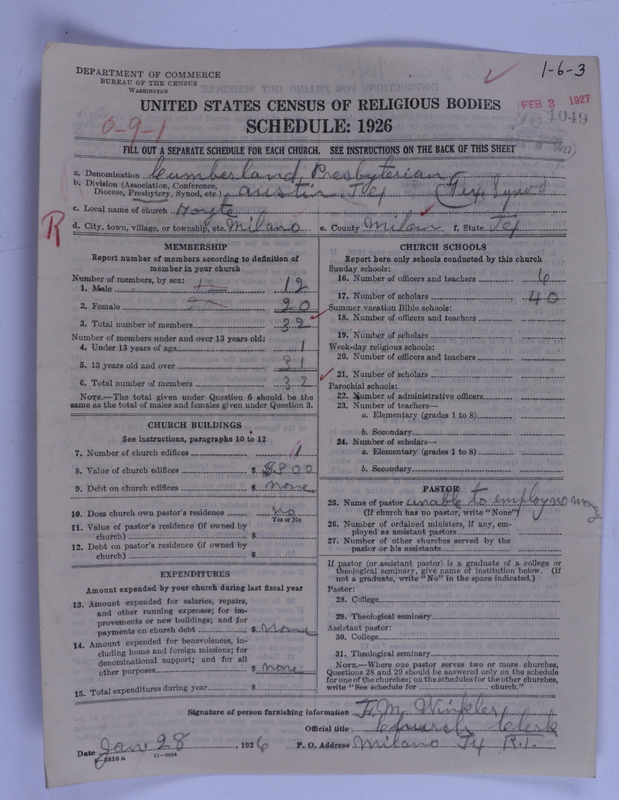 1-6-3
DEPARTMENT OF COMMERCE
BUREAU OF THE CENSUS
WASHINGTON
UNITED STATES CENSUS OF RELIGIOUS BODIES
FEB 3 1927
SCHEDULE: 1926
0-9-1
FILL OUT A SEPARATE SCHEDULE FOR EACH CHURCH. SEE INSTRUCTIONS ON THE BACK OF THIS SHEET
a. Denomination Cumberland Presbyterian
b. Division (Association, Conference,
Diocese, Presbytery, Synod, etc.) Austin Tex (Tex, Synod
c. Local name of church Hoyte
R
d. City, town, village, or township, etc. Milano e. County Milam f. State Tex
MEMBERSHIP
Report number of members according to definition of
member in your church
Number of members, by sex:
1. Male 12
2. Female 20
3. Total number of members 32
Number of members under and over 13 years old:
4. Under 13 years of age 1
5. 13 years old and over 31
6. Total number of members 32
NOTE.—The total given under Question 6 should be the
same as the total of males and females given under Question 3.
CHURCH BUILDINGS
See instructions, paragraphs 10 to 12
7. Number of church edifices 1
8. Value of church edifices $ $300
9. Debt on church edifices $ none
10. Does church own pastor's residence no
Yes or No
11. Value of pastor's residence (if owned by
church) $
12. Debt on pastor's residence (if owned by
church) $
EXPENDITURES
Amount expended by your church during last fiscal year
13. Amount expended for salaries, repairs,
and other running expenses; for im-
provements or new buildings; and for
payments on church debt $ none
14. Amount expended for benevolences, in-
cluding home and foreign missions; for
denominational support; and for all
other purposes $ none
15. Total expenditures during year $
CHURCH SCHOOLS
Report here only schools conducted by this church
Sunday schools:
16. Number of officers and teachers 6
17. Number of scholars 40
Summer vacation Bible schools:
18. Number of officers and teachers
19. Number of scholars
Week-day religious schools:
20. Number of officers and teachers
21. Number of scholars
Parochial schools:
22. Number of administrative officers
23. Number of teachers—
a. Elementary (grades 1 to 8)
b. Secondary
24. Number of scholars—
a. Elementary (grades 1 to 8)
b. Secondary
PASTOR
25. Name of pastor unable to employ no money
(If church has no pastor, write "None")
26. Number of ordained ministers, if any, em-
ployed as assistant pastors
27. Number of other churches served by the
pastor or his assistants
If pastor (or assistant pastor) is a graduate of a college or
theological seminary, give name of institution below. (If
not a graduate, write "No" in the space indicated.)
Pastor:
28. College
29. Theological seminary
Assistant pastor:
30. College
31. Theological seminary
NOTE.—Where one pastor serves two or more churches,
Questions 28 and 29 should be answered only on the schedule
for one of the churches; on the schedules for the other churches,
write "See schedule for church."
Signature of person furnishing information F. M. Winkler
Official title Church Clerk
Date Jan 28, 1926 P. O. Address Milano Tx R.1.